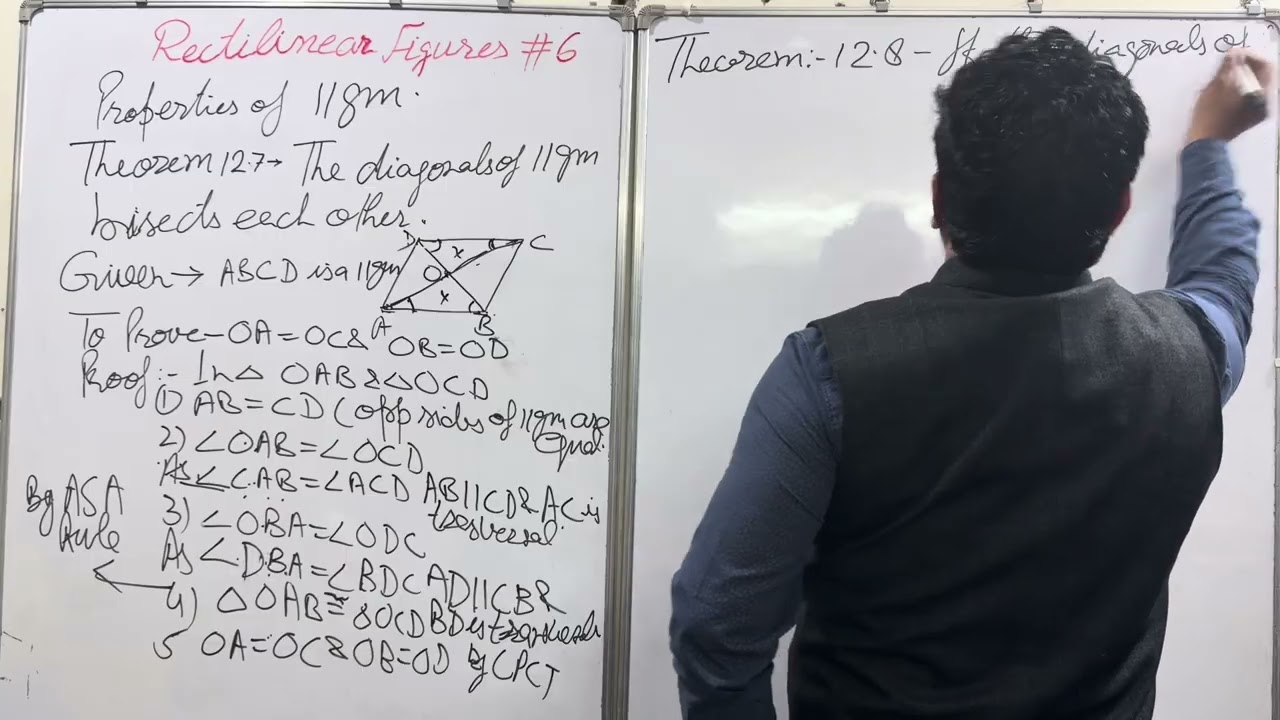 Rectilinear Figures #6
Properties of 11gm.
Theorem 12.7→ The diagonals of 11gm
bisects each other.
Given → ABCD is a 11gm
D C
x
O
x
A B
To Prove - OA=OC & OB=OD
Proof:- In △ OAB & △OCD
① AB = CD (opp sides of 11gm are
Equal
2) ∠OAB=∠OCD
As ∠CAB=∠ACD AB||CD & AC is
transversal
3) ∠OBA=∠ODC
As ∠DBA=∠BDC AD||CB &
BD is transversal
By ASA
Rule
4) △OAB≅ △OCD
5 OA=OC & OB=OD By CPCT
Theorem:- 12.8 - If diagonals of